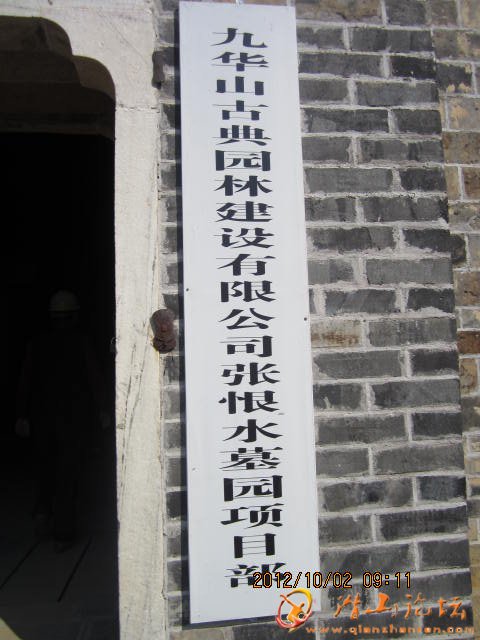 九华山古典园林建设有限公司张恨水墓园项目部
2012/10/02 09:11
潜山论坛
www.qianzhansen.com